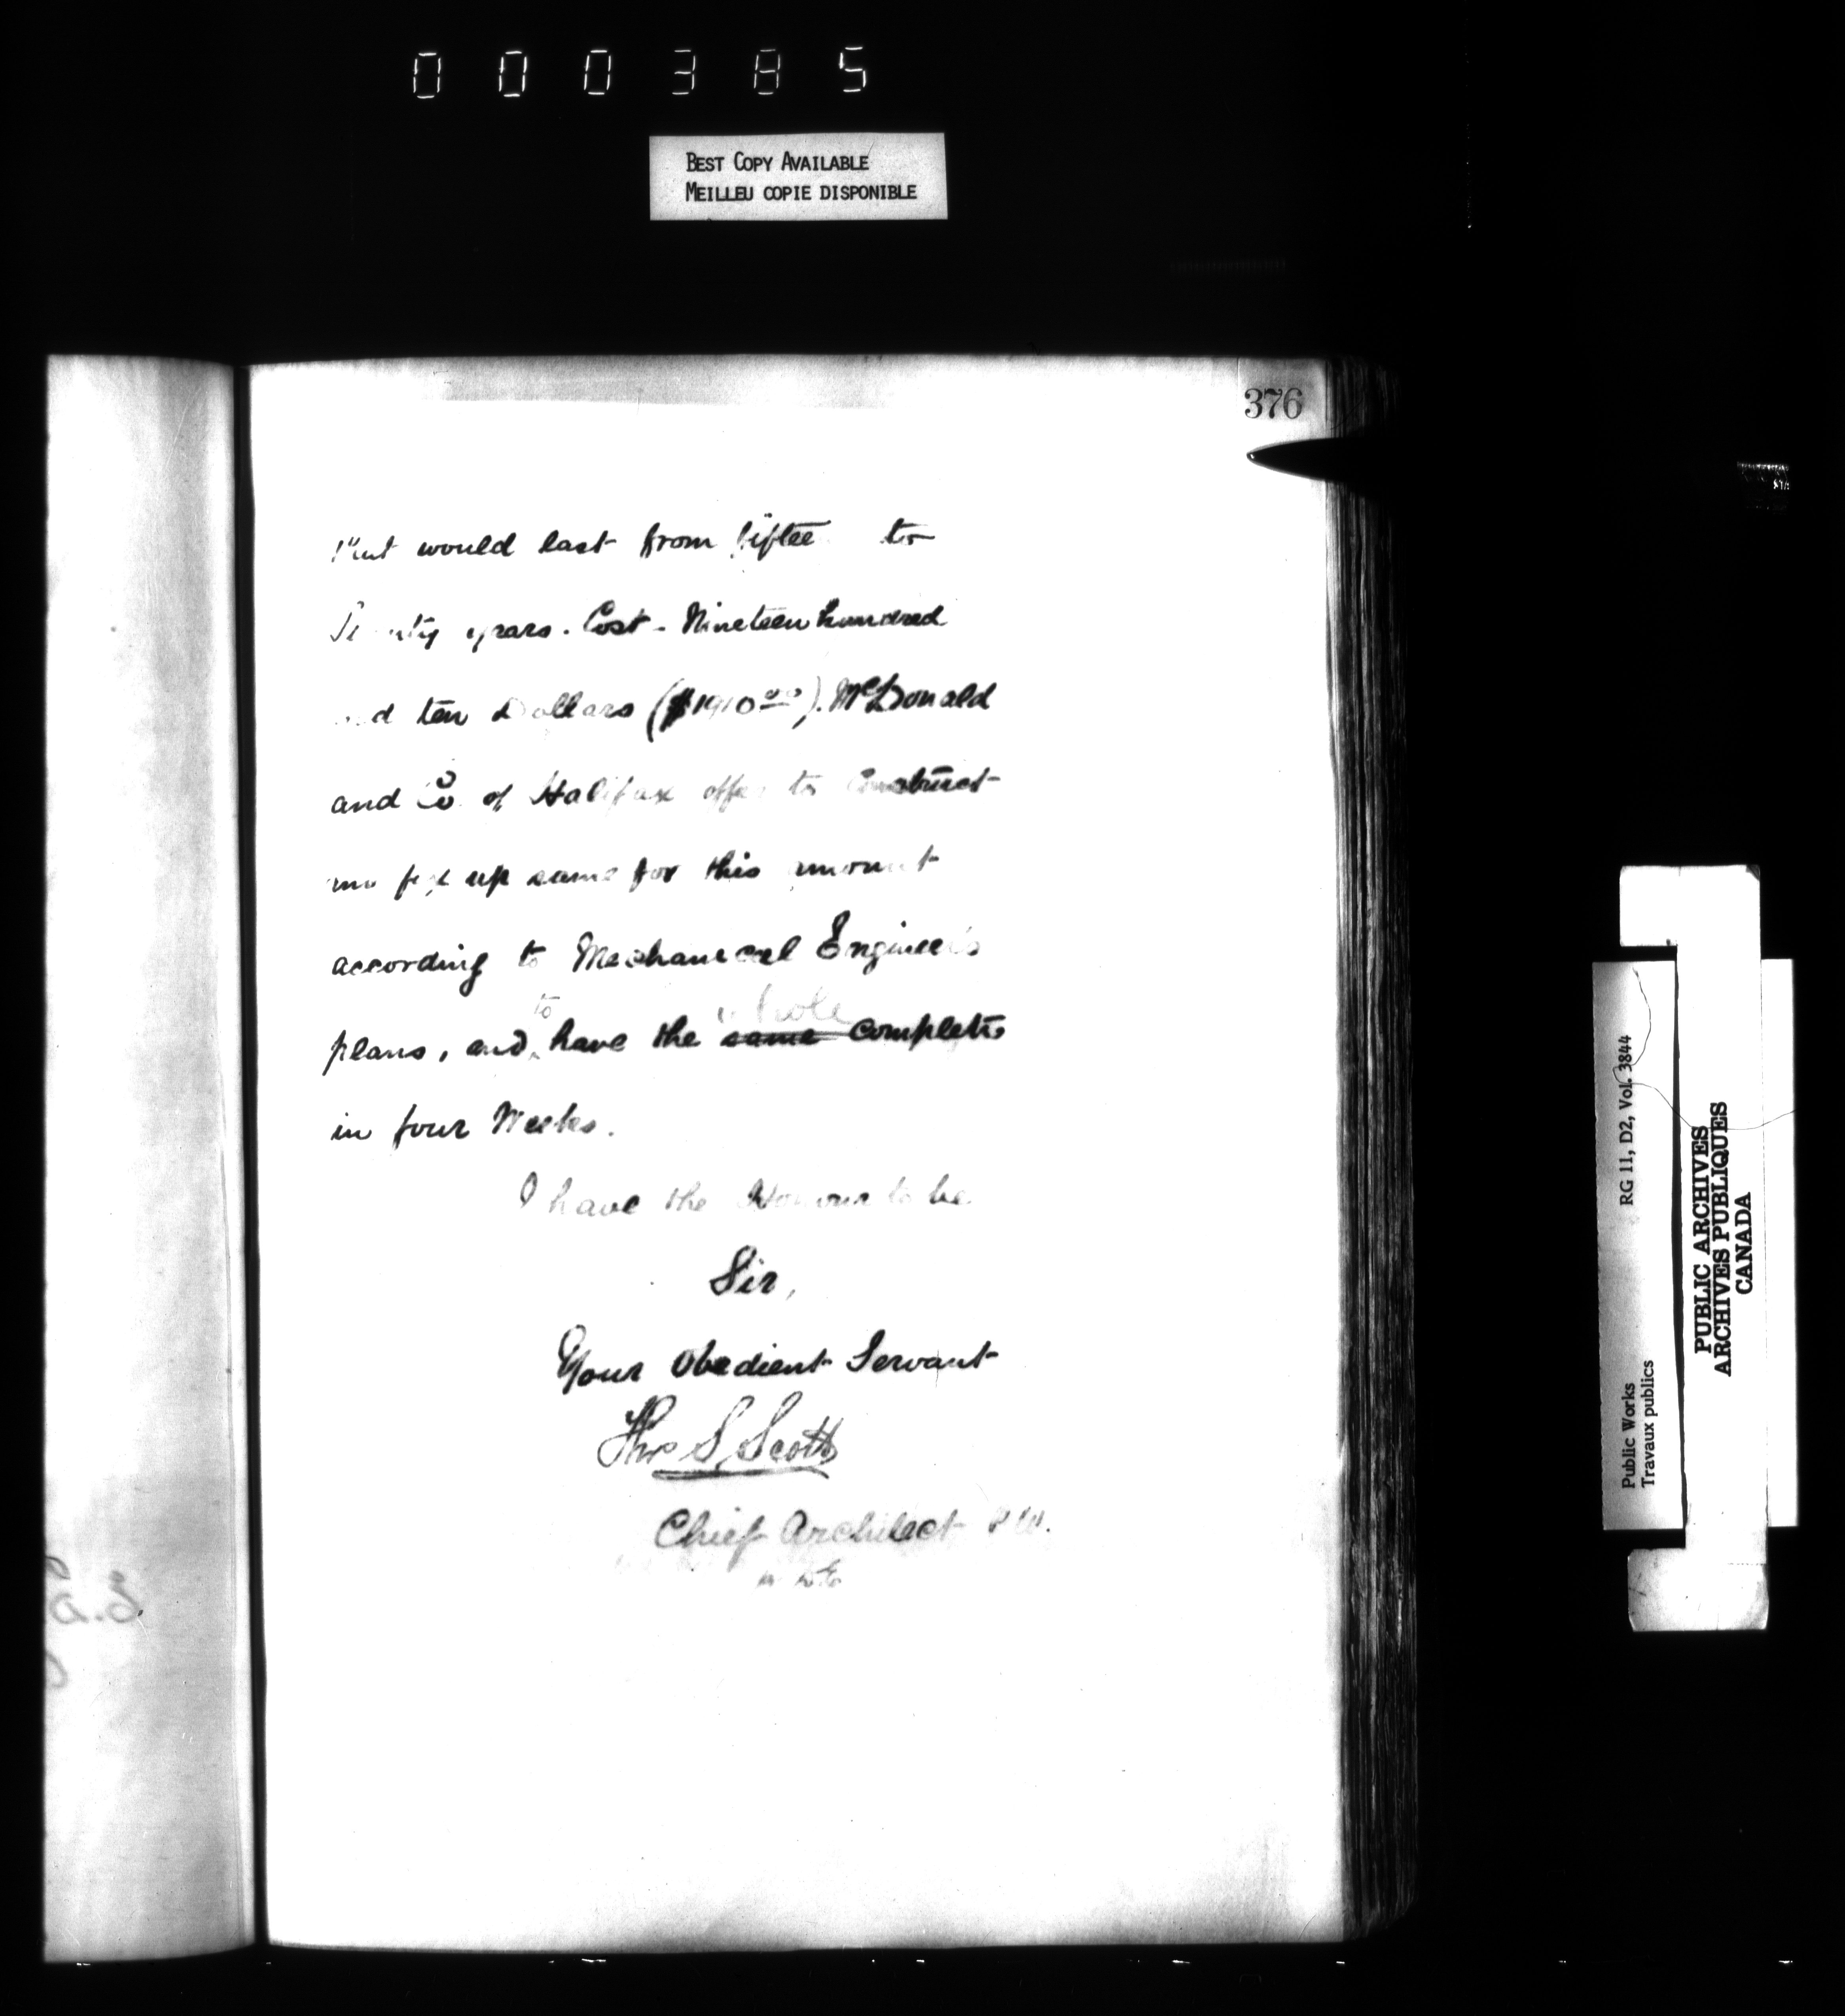 000385
BEST COPY AVAILABLE
MEILLEU COPIE DISPONIBLE
376
that would last from fifteen to
Twenty years. Cost - Nineteen hundred
and ten Dollars ($1910.00). McDonald
and Co. of Halifax offer to Construct
and fix up same for this amount
according to Mechanical Engineer's
to whole
plans, and have the same complete
in four Weeks.
I have the Honour to be
Sir,
Your Obedient Servant
Thos S. Scott
Chief Architect P.W.
RG 11, D2, Vol. 3844
Public Works
Travaux publics
PUBLIC ARCHIVES
ARCHIVES PUBLIQUES
CANADA